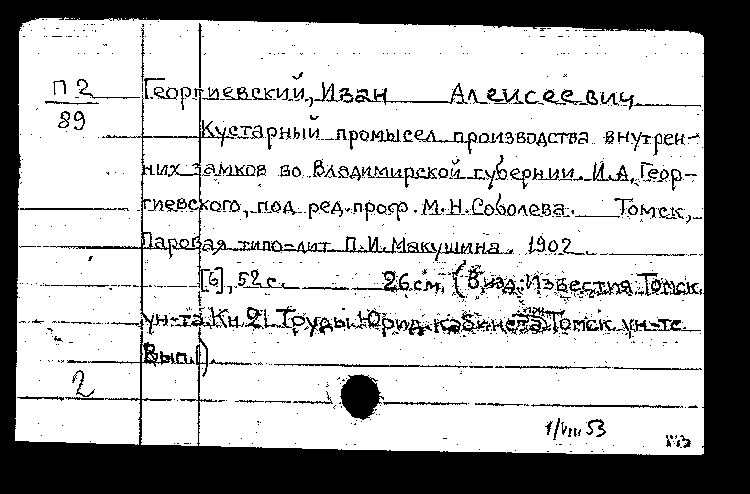 П 2
89
Георгиевский, Иван Алексеевич
Кустарный промысел производства внутрен-
них замков во Владимирской губернии. И.А. Геор-
гиевского, под ред. проф. М.Н. Соболева. Томск,
Паровая типо-лит. П.И. Макушина. 1902
[6], 52 с. 26 см. (В изд: Известия Томск.
ун-та. Кн. 21. Труды Юрид. кабинета Томск. ун-та
Вып. 1).
2
1/VIII 53